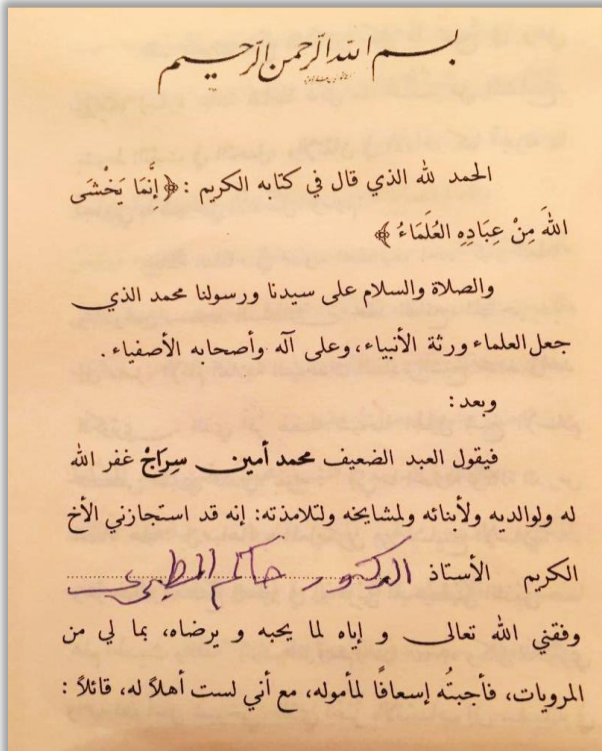 بسم الله الرحمن الرحيم
الحمد لله الذي قال في كتابه الكريم : ﴿ إِنَّمَا يَخْشَى
اللهَ مِنْ عِبَادِهِ العُلَمَاءُ ﴾
والصلاة والسلام على سيدنا ورسولنا محمد الذي
جعل العلماء ورثة الأنبياء، وعلى آله وأصحابه الأصفياء .
وبعد :
فيقول العبد الضعيف محمد أمين سِرَاجْ غفر الله
له ولوالديه ولأبنائه ولمشايخه ولتلامذته: إنه قد استجازني الأخ
الكريم الأستاذ الدكتور حاكم المطيري
وفقني الله تعالى و إياه لما يحبه و يرضاه، بما لي من
المرويات، فأجبتُه إسعافًا لمأموله، مع أني لست أهلاً له، قائلاً :